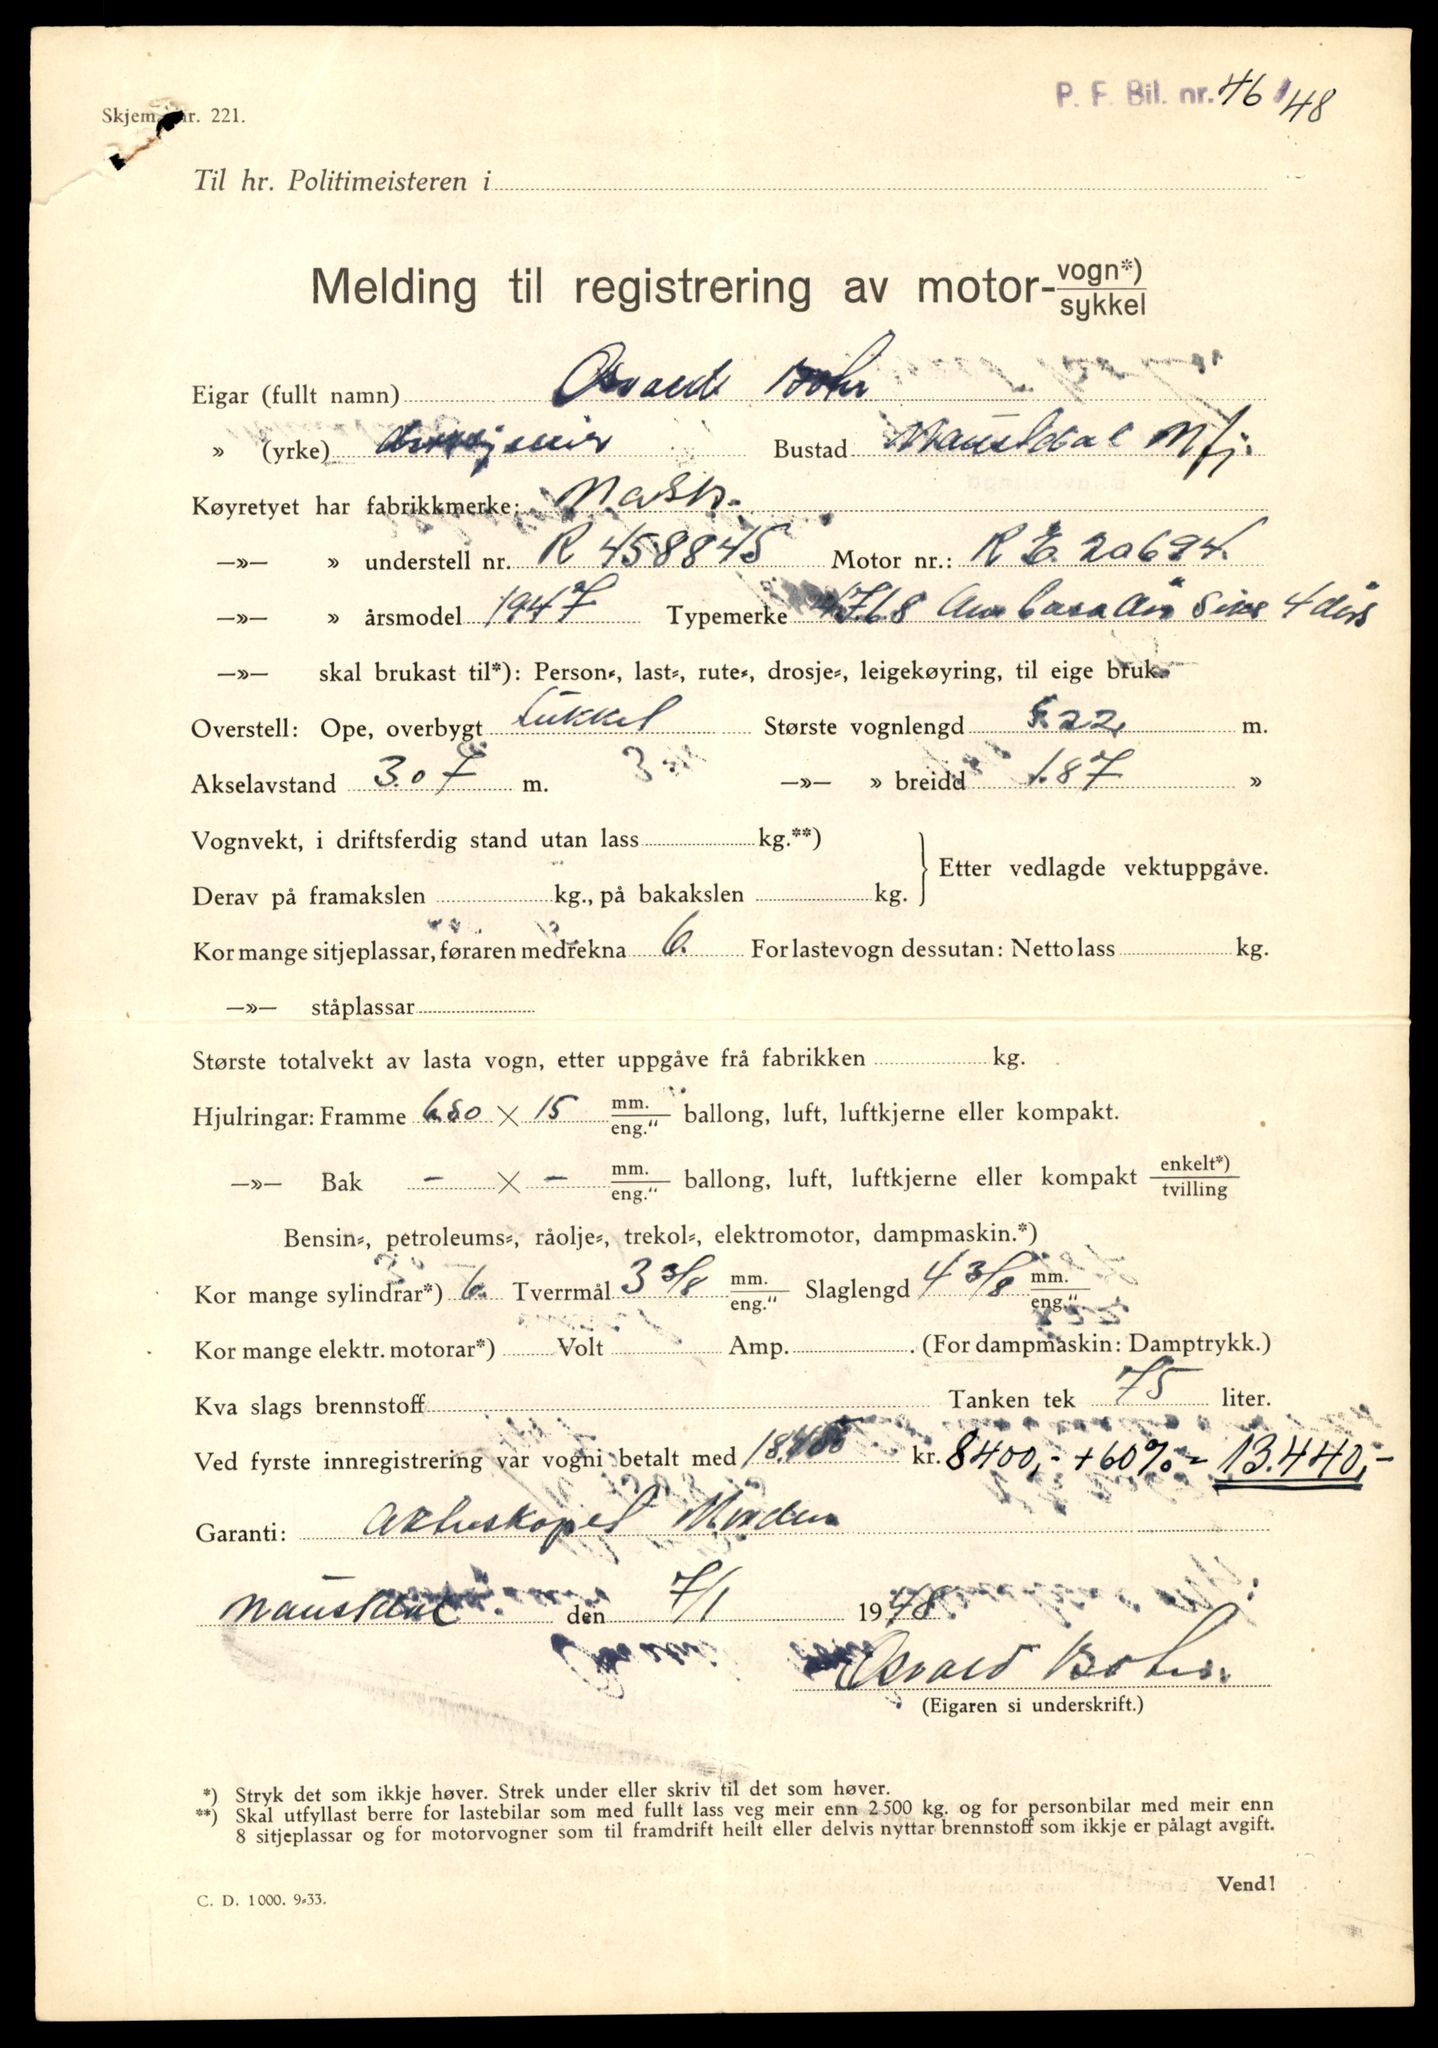 P. F. Bil. nr. 46/48
Skjema nr. 221.
Til hr. Politimeisteren i
Melding til registrering av motor-vogn*)/sykkel
Eigar (fullt namn) Osvald
» (yrke) Bustad Naustdal
Køyretyet har fabrikkmerke: Nash.
—»— » understell nr. R 458845 Motor nr.: R E. 20694.
—»— » årsmodel 1947 Typemerke 4768 Ambasadør 4 dørs
—»— skal brukast til*): Person-, last-, rute-, drosje-, leigekøyring, til eige bruk.
Overstell: Ope, overbygt Lukket Største vognlengd 5.22 m.
Akselavstand 3.07 m. —»— » breidd 1.87 »
Vognvekt, i driftsferdig stand utan lass kg.**)
Etter vedlagde vektuppgåve.
Derav på framakslen kg., på bakakslen kg.
Kor mange sitjeplassar, føraren medrekna 6. For lastevogn dessutan: Netto lass kg.
—»— ståplassar
Største totalvekt av lasta vogn, etter uppgåve frå fabrikken kg.
Hjulringar: Framme 6.50 × 15 mm./eng." ballong, luft, luftkjerne eller kompakt.
—»— Bak - × - mm./eng." ballong, luft, luftkjerne eller kompakt enkelt*)/tvilling
Bensin-, petroleums-, råolje-, trekol-, elektromotor, dampmaskin.*)
Kor mange sylindrar*) 6. Tverrmål 3 3/8 mm./eng." Slaglengd 4 3/8 mm./eng."
Kor mange elektr. motorar*) Volt Amp. . (For dampmaskin: Damptrykk.)
Kva slags brennstoff Tanken tek 75 liter.
Ved fyrste innregistrering var vogni betalt med kr. 8400,- + 60% = 13.440,-
Garanti:
Naustdal den 7/1 1948
Osvald
(Eigaren si underskrift.)
*) Stryk det som ikkje høver. Strek under eller skriv til det som høver.
**) Skal utfyllast berre for lastebilar som med fullt lass veg meir enn 2500 kg. og for personbilar med meir enn
8 sitjeplassar og for motorvogner som til framdrift heilt eller delvis nyttar brennstoff som ikkje er pålagt avgift.
Vend!
C. D. 1000. 9-33.